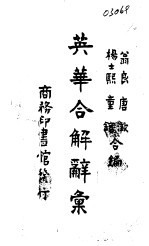 03069
翁良 唐敏
楊士熙 童鎮
合編
英華合解辭彙
商務印書館發行